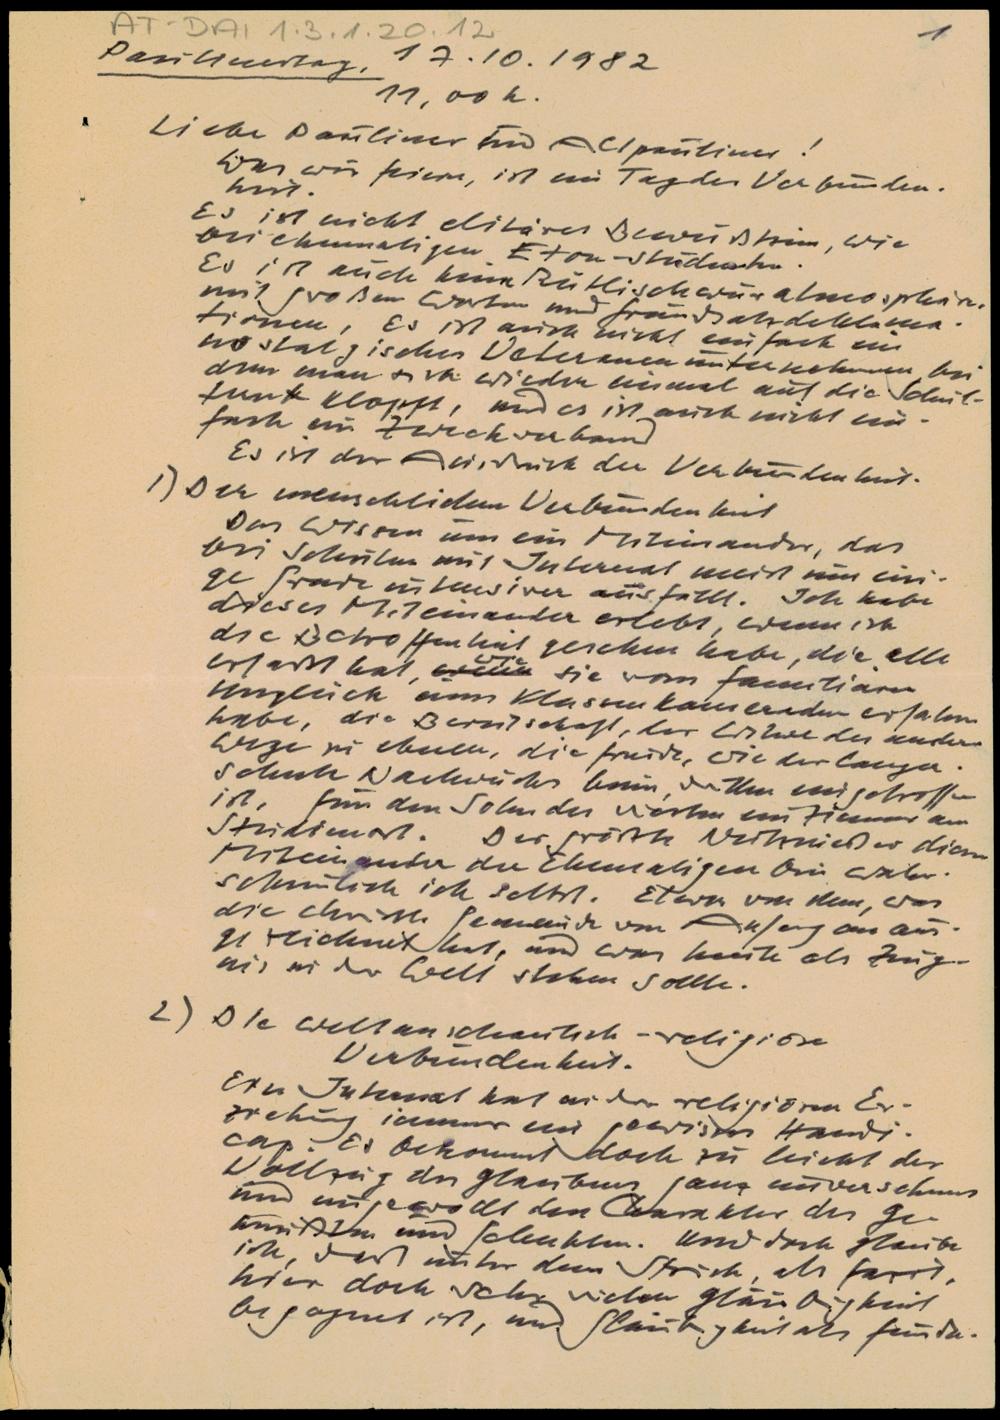 AT-DAI 1.3.1.20.12
1
Paulinertag, 17.10.1982
11,00 h.
Liebe Pauliner und Altpauliner!
Was wir feiern, ist ein Tag der Verbunden-
heit.
Es ist nicht elitäres Bewußtsein, wie
bei ehemaligen Eton-studenten.
Es ist auch keine Rütlischwuratmosphäre
mit großen Worten und Grundsatzdeklama-
tionen, Es ist auch nicht einfach ein
nostalgisches Veteranenunternehmen, bei
dem man sich wieder einmal auf die Schul-
tern klopft, und es ist auch nicht ein-
fach ein Zweckverband
Es ist der Ausdruck der Verbundenheit.
1) Der menschlichen Verbundenheit
Das Wissen um ein Miteinander, das
bei Schulen mit Internat meist um eini-
ge Grade intensiver ausfällt. Ich habe
dieses Miteinander erlebt, wenn ich
die Betroffenheit gesehen habe, die alle
erfaßt hat, wie sie vom familiären
Unglück eines Klassenkameraden erfahren
habe, die Bereitschaft, der Witwe des andern
Wege zu ebnen, die Freude, wie der lang er-
sehnte Nachwuchs beim dritten eingetroffen
ist, für den Sohn des vierten ein Zimmer am
Studienort. Der größte Nutznießer dieses
Miteinander der Ehemaligen bin wahr-
scheinlich ich selbst. Etwas von dem, was
die christl. Gemeinde von Anfang an aus-
gezeichnet hat, und was heute als Zeug-
nis in der Welt stehen sollte.
2) Die weltanschaulich-religiöse
Verbundenheit.
Ein Internat hat in der religiösen Er-
ziehung immer ein gewisses Handi-
cap. Es bekommt doch zu leicht der
Vollzug des Glaubens ganz unversehens
und ungewollt den Charakter des Ge-
mußten und Gelenkten. Und doch glaube
ich, daß unter dem Strich, als
hier doch sehr vielen Gläubigkeit
begegnet ist, und Gläubigkeit als